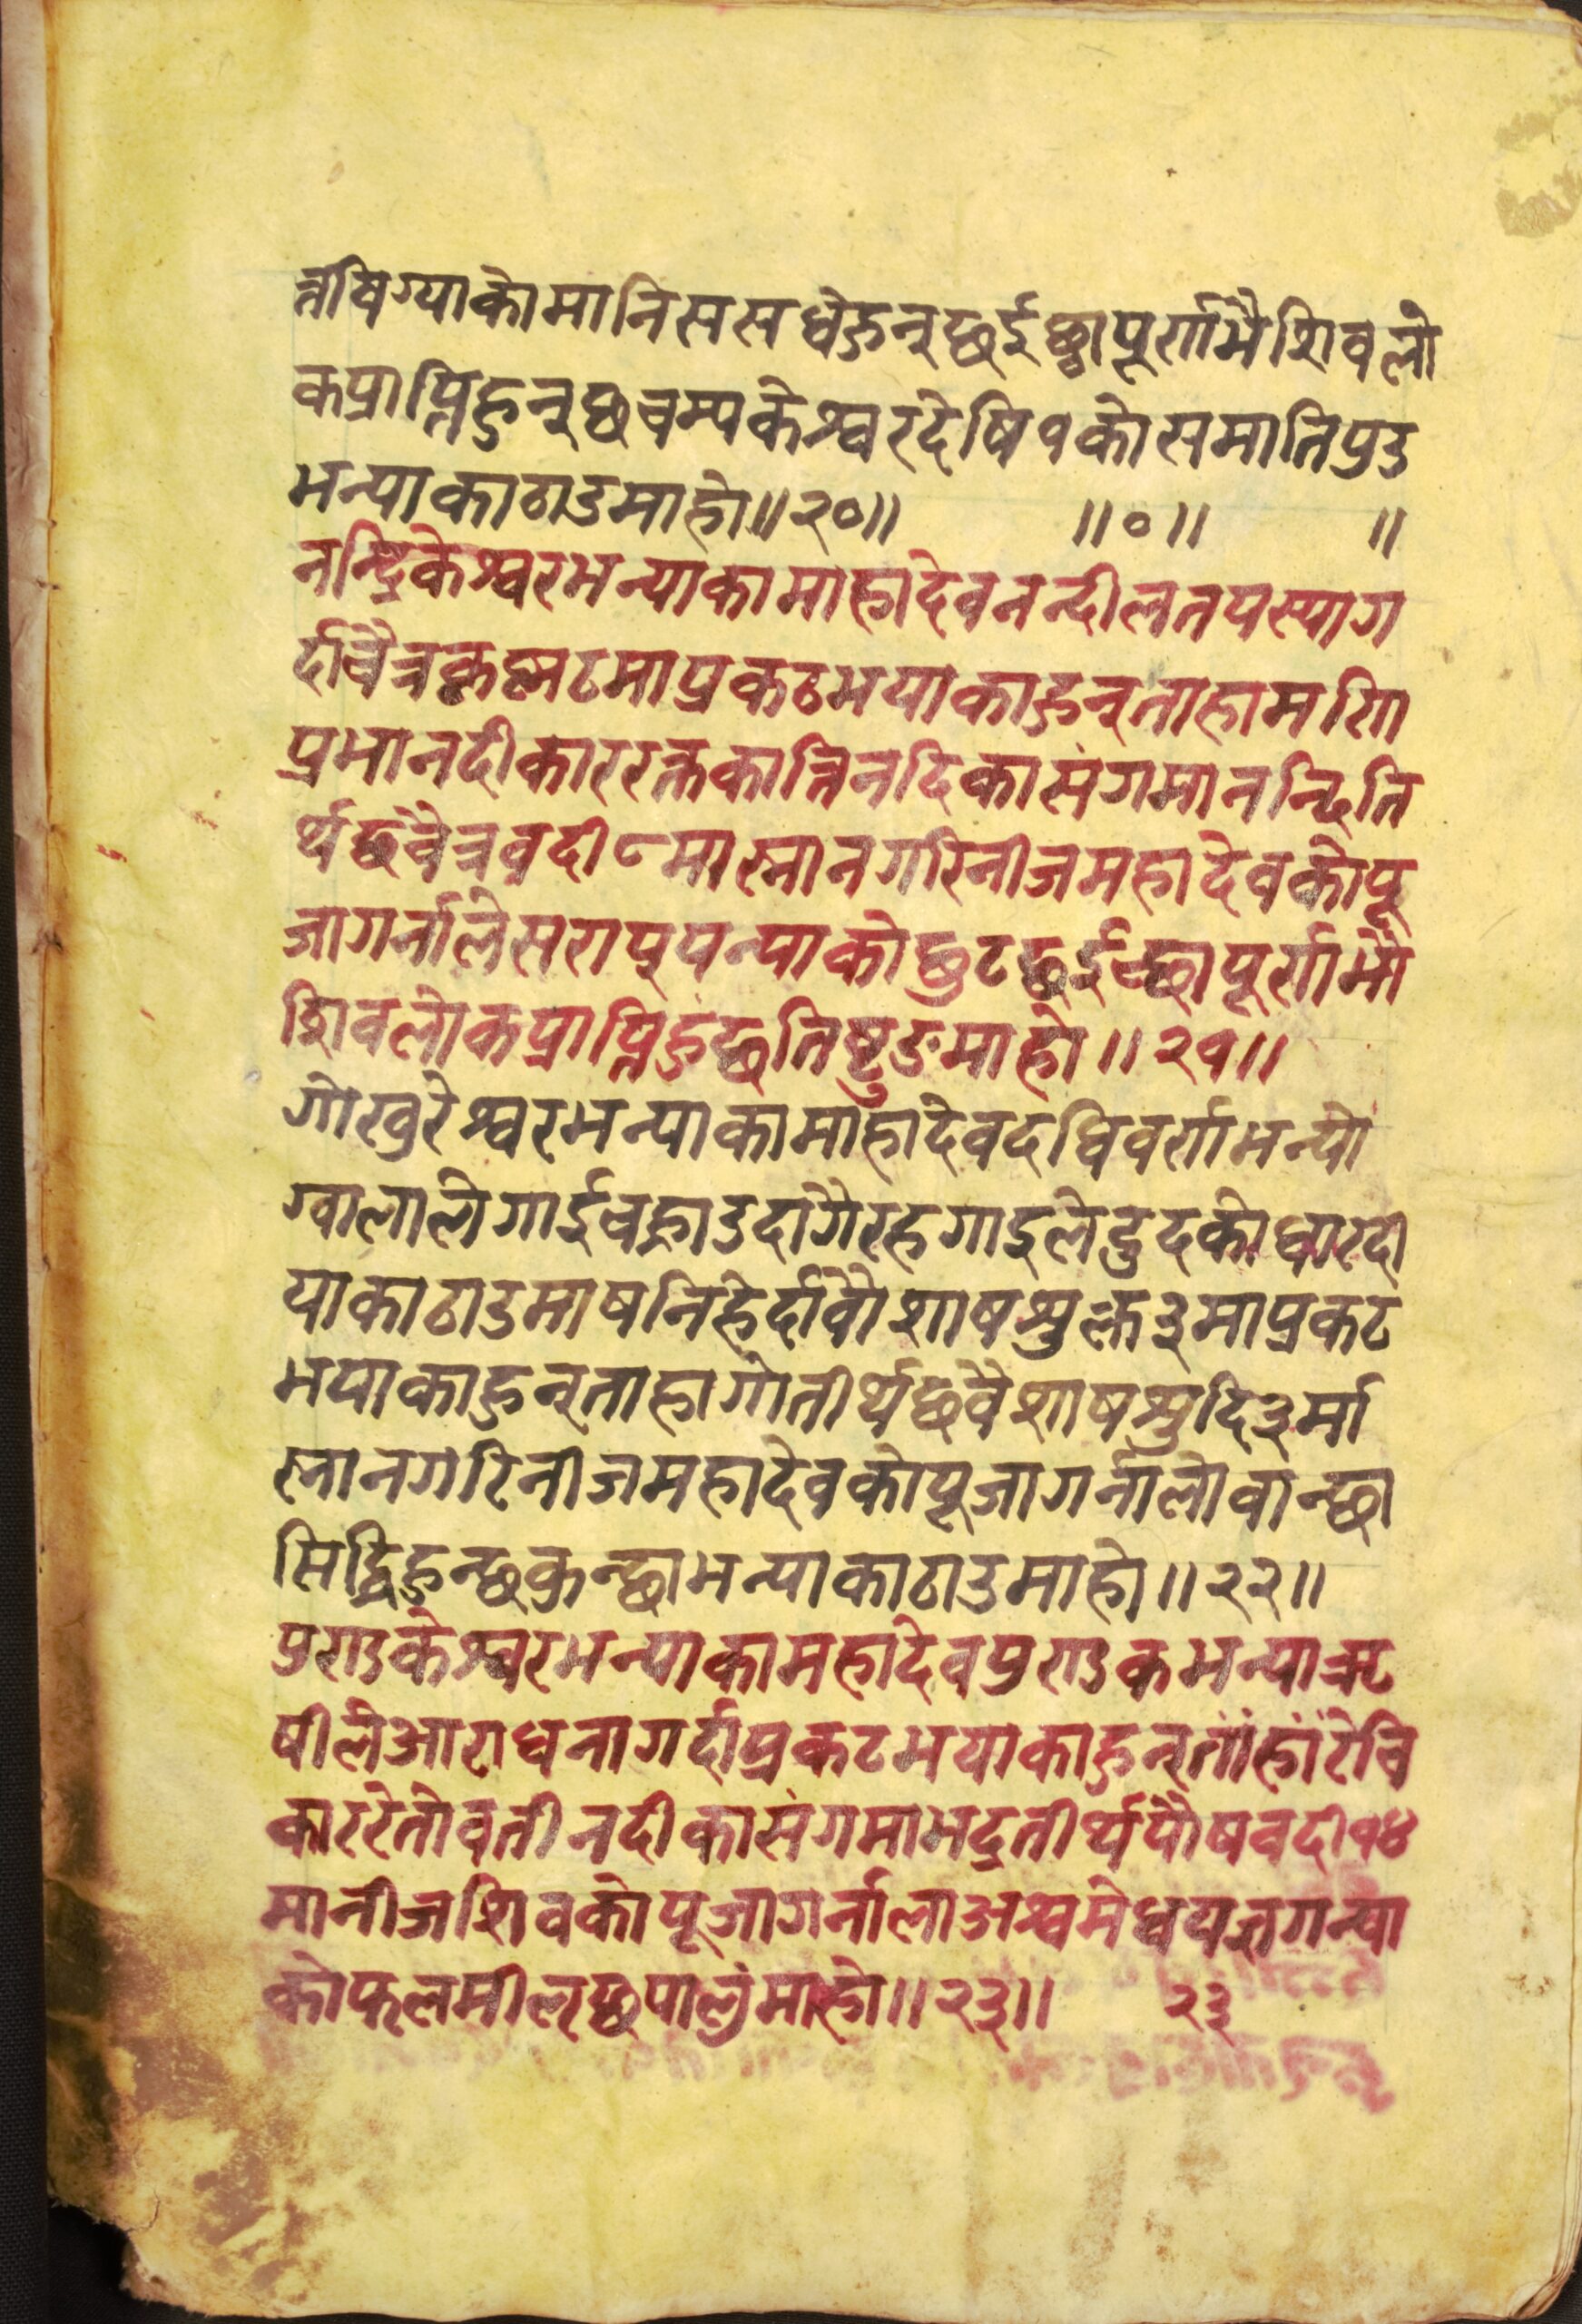 त्नषिग्याकोमानिससधेहुनन्छईछापूर्णभैशिवलो
कप्राप्तिहुनन्छचम्पकेश्वरदेषि१कोसमातिपुउ
भन्याकाठाउमाहो॥२०॥ ॥०॥ ॥
नन्दिकेश्वरभन्याकामाहादेवनन्दीलतपस्याग
र्दाचैत्रकृष्ण८माप्रकठभयाकाहुनन्ताहामणि
प्रभानदीकाररक्तकान्तिनदिकासंगमानन्दिति
र्थछचैत्रवदी८मास्नानगरिनीजमहादेवकोपू
जागर्नालेसरापपन्याकोछुटछईच्छापूर्णभै
शिवलोकप्राप्तिहुंछतिष्टुङमाहो॥२१॥
गोखुरेश्वरभन्याकामाहादेवदधिवर्णभन्यो
ग्वालालेगाईचह्राउदागैरहगाइलेदुदकोधारदी
याकाठाउमाषनिहेर्दावैशाषश्रुक्ल३माप्रकट
भयाकाहुनन्ताहागोतीर्थछवैशाषश्रुदि३र्मा
स्नानगरिनीजमहादेवकोपूजागर्नालेवान्छा
सिद्धिहुन्छकुन्छाभन्याकाठाउमाहो॥२२॥
पुराउकेश्वरभन्याकामहादेवपुराउकभन्याऋ
षीलेआराधनागर्दाप्रकटभयाकाहुनन्तांहांरोचि
काररेतोवतीनदीकासंगमाभद्रतीर्थपौषवदी१४
मानीजशिवकोपूजागर्नालाअश्वमेधयज्ञगन्या
कोफलमीलन्छपालुंमाहो॥२३॥ २३